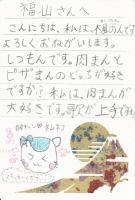 福山さんへ
こんにちは、私は、　　の人です
よろしくおねがいします。
しつもんです。肉まんと
ピザまんのどっちが好き
ですか？私は、肉まんが
大好きです。歌が上手ですね